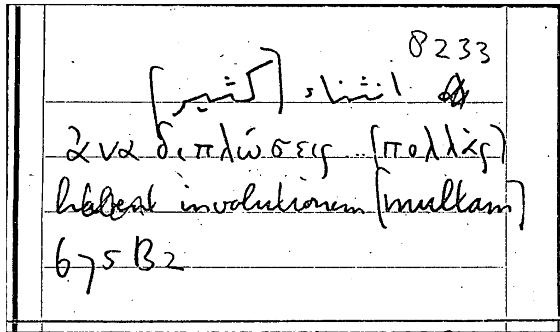 8233
انثناء [كثير]
ἀναδιπλώσεις .. [πολλὰς]
habent involutionem [multam]
675 B2